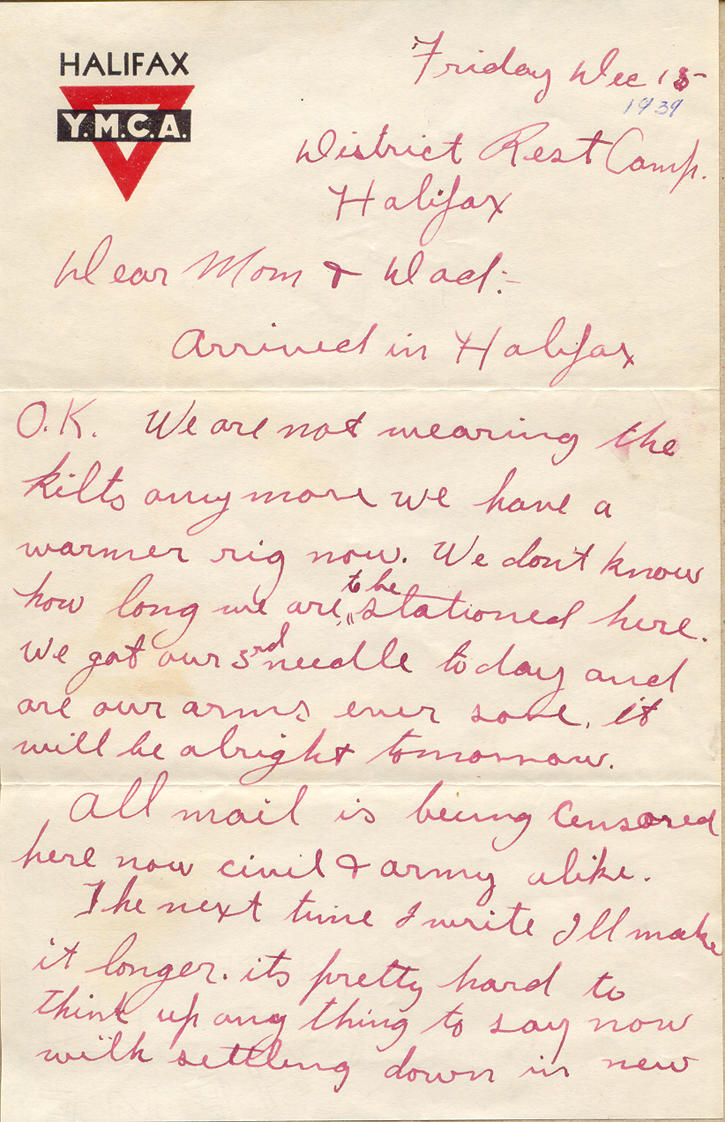 HALIFAX
Y.M.C.A.
Friday Dec 15
1939
District Rest Camp.
Halifax
Dear Mom & Dad:-
Arrived in Halifax
O.K. We are not wearing the
kilts anymore we have a
warmer rig now. We don't know
how long we are to be stationed here.
We got our 3rd needle today and
are our arms ever sore, it
will be alright tomorrow.
All mail is being censored
here now civil & army alike.
The next time I write I'll make
it longer. its pretty hard to
think up any thing to say now
with settling down in new